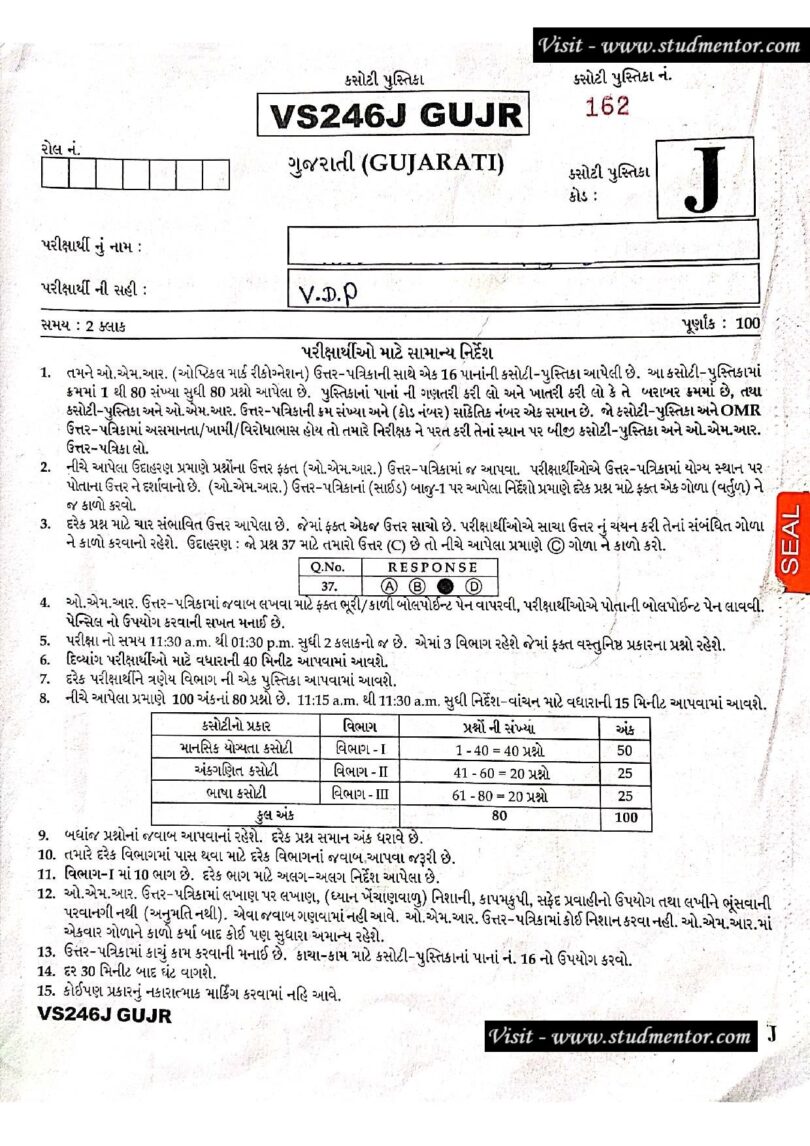 Visit - www.studmentor.com
કસોટી પુસ્તિકા
કસોટી પુસ્તિકા નં.
VS246J GUJR
162
રોલ નં.
ગુજરાતી (GUJARATI)
કસોટી પુસ્તિકા
કોડ :
J
પરીક્ષાર્થી નું નામ :
પરીક્ષાર્થી ની સહી :
V.D.P
સમય : 2 કલાક
પૂર્ણાંક : 100
પરીક્ષાર્થીઓ માટે સામાન્ય નિર્દેશ
1. તમને ઓ.એમ.આર. (ઓપ્ટિકલ માર્ક રીકોગ્નેશન) ઉત્તર-પત્રિકાની સાથે એક 16 પાનાંની કસોટી-પુસ્તિકા આપેલી છે. આ કસોટી-પુસ્તિકામાં
ક્રમમાં 1 થી 80 સંખ્યા સુધી 80 પ્રશ્નો આપેલા છે. પુસ્તિકાનાં પાનાં ની ગણતરી કરી લો અને ખાતરી કરી લો કે તે બરાબર ક્રમમાં છે, તથા
કસોટી-પુસ્તિકા અને ઓ.એમ.આર. ઉત્તર-પત્રિકાની ક્રમ સંખ્યા અને (કોડ નંબર) સાંકેતિક નંબર એક સમાન છે. જો કસોટી-પુસ્તિકા અને OMR
ઉત્તર-પત્રિકામાં અસમાનતા/ખામી/વિરોધાભાસ હોય તો તમારે નિરીક્ષક ને પરત કરી તેનાં સ્થાન પર બીજી કસોટી-પુસ્તિકા અને ઓ.એમ.આર.
ઉત્તર-પત્રિકા લો.
2. નીચે આપેલા ઉદાહરણ પ્રમાણે પ્રશ્નોના ઉત્તર ફક્ત (ઓ.એમ.આર.) ઉત્તર-પત્રિકામાં જ આપવા. પરીક્ષાર્થીઓએ ઉત્તર-પત્રિકામાં યોગ્ય સ્થાન પર
પોતાના ઉત્તર ને દર્શાવાનો છે. (ઓ.એમ.આર.) ઉત્તર-પત્રિકાનાં (સાઈડ) બાજુ-1 પર આપેલા નિર્દેશો પ્રમાણે દરેક પ્રશ્ન માટે ફક્ત એક ગોળા (વર્તુળ) ને
જ કાળો કરવો.
3. દરેક પ્રશ્ન માટે ચાર સંભાવિત ઉત્તર આપેલા છે. જેમાં ફક્ત એકજ ઉત્તર સાચો છે. પરીક્ષાર્થીઓએ સાચા ઉત્તર નું ચયન કરી તેનાં સંબંધિત ગોળા
ને કાળો કરવાનો રહેશે. ઉદાહરણ : જો પ્રશ્ન 37 માટે તમારો ઉત્તર (C) છે તો નીચે આપેલા પ્રમાણે Ⓒ ગોળા ને કાળો કરો.
Q.No. RESPONSE
37. Ⓐ Ⓑ ● Ⓓ
4. ઓ.એમ.આર. ઉત્તર-પત્રિકામાં જવાબ લખવા માટે ફક્ત ભૂરી/કાળી બોલપોઈન્ટ પેન વાપરવી, પરીક્ષાર્થીઓએ પોતાની બોલપોઈન્ટ પેન લાવવી.
પેન્સિલ નો ઉપયોગ કરવાની સખત મનાઈ છે.
5. પરીક્ષા નો સમય 11:30 a.m. થી 01:30 p.m. સુધી 2 કલાકનો જ છે. એમાં 3 વિભાગ રહેશે જેમાં ફક્ત વસ્તુનિષ્ઠ પ્રકારના પ્રશ્નો રહેશે.
6. દિવ્યાંગ પરીક્ષાર્થીઓ માટે વધારાની 40 મિનીટ આપવામાં આવશે.
7. દરેક પરીક્ષાર્થીને ત્રણેય વિભાગ ની એક પુસ્તિકા આપવામાં આવશે.
8. નીચે આપેલા પ્રમાણે 100 અંકનાં 80 પ્રશ્નો છે. 11:15 a.m. થી 11:30 a.m. સુધી નિર્દેશ-વાંચન માટે વધારાની 15 મિનીટ આપવામાં આવશે.
કસોટીનો પ્રકાર વિભાગ પ્રશ્નોં ની સંખ્યા અંક
માનસિક યોગ્યતા કસોટી વિભાગ - I 1 - 40 = 40 પ્રશ્નો 50
અંકગણિત કસોટી વિભાગ - II 41 - 60 = 20 પ્રશ્નો 25
ભાષા કસોટી વિભાગ - III 61 - 80 = 20 પ્રશ્નો 25
કુલ અંક 80 100
9. બધાંજ પ્રશ્નોનાં જવાબ આપવાનાં રહેશે. દરેક પ્રશ્ન સમાન અંક ધરાવે છે.
10. તમારે દરેક વિભાગમાં પાસ થવા માટે દરેક વિભાગનાં જવાબ આપવા જરૂરી છે.
11. વિભાગ-I માં 10 ભાગ છે. દરેક ભાગ માટે અલગ-અલગ નિર્દેશ આપેલા છે.
12. ઓ.એમ.આર. ઉત્તર-પત્રિકામાં લખાણ પર લખાણ, (ધ્યાન ખેંચાણવાળુ) નિશાની, કાપમકુપી, સફેદ પ્રવાહીનો ઉપયોગ તથા લખીને ભૂંસવાની
પરવાનગી નથી (અનુમતિ નથી). એવા જવાબ ગણવામાં નહી આવે. ઓ.એમ.આર. ઉત્તર-પત્રિકામાં કોઈ નિશાન કરવા નહી. ઓ.એમ.આર.માં
એકવાર ગોળાને કાળો કર્યા બાદ કોઈ પણ સુધારા અમાન્ય રહેશે.
13. ઉત્તર-પત્રિકામાં કાચું કામ કરવાની મનાઈ છે. કાચા-કામ માટે કસોટી-પુસ્તિકાનાં પાનાં નં. 16 નો ઉપયોગ કરવો.
14. દર 30 મિનીટ બાદ ઘંટ વાગશે.
15. કોઈપણ પ્રકારનું નકારાત્મક માર્કિંગ કરવામાં નહિ આવે.
VS246J GUJR
Visit - www.studmentor.com
J
SEAL